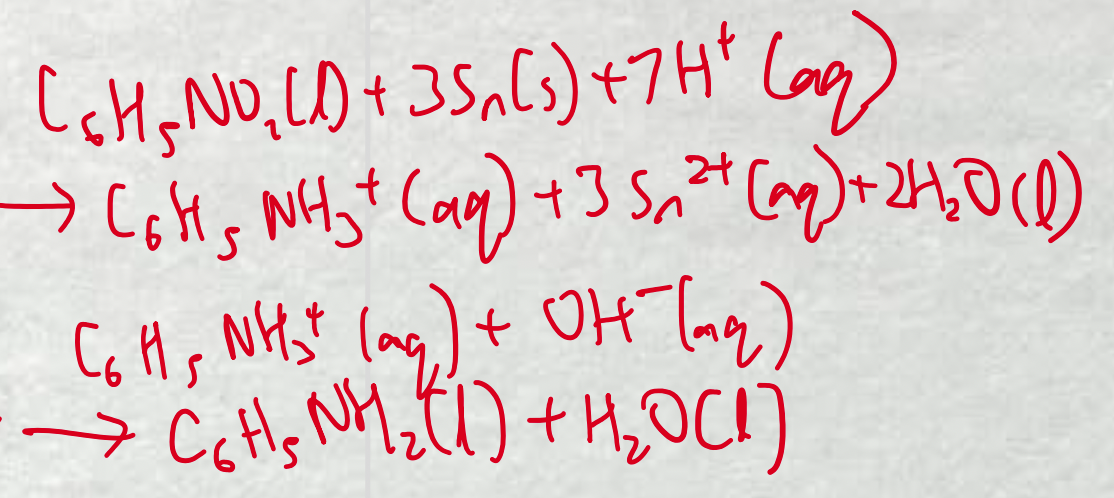 C₆H₅NO₂(l) + 3Sn(s) + 7H⁺ (aq)
→ C₆H₅NH₃⁺ (aq) + 3Sn²⁺ (aq) + 2H₂O(l)
C₆H₅NH₃⁺ (aq) + OH⁻ (aq)
→ C₆H₅NH₂(l) + H₂O(l)